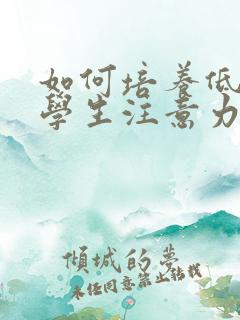 如何培養低
學生注意力
傾城的夢
未经同意禁止转载